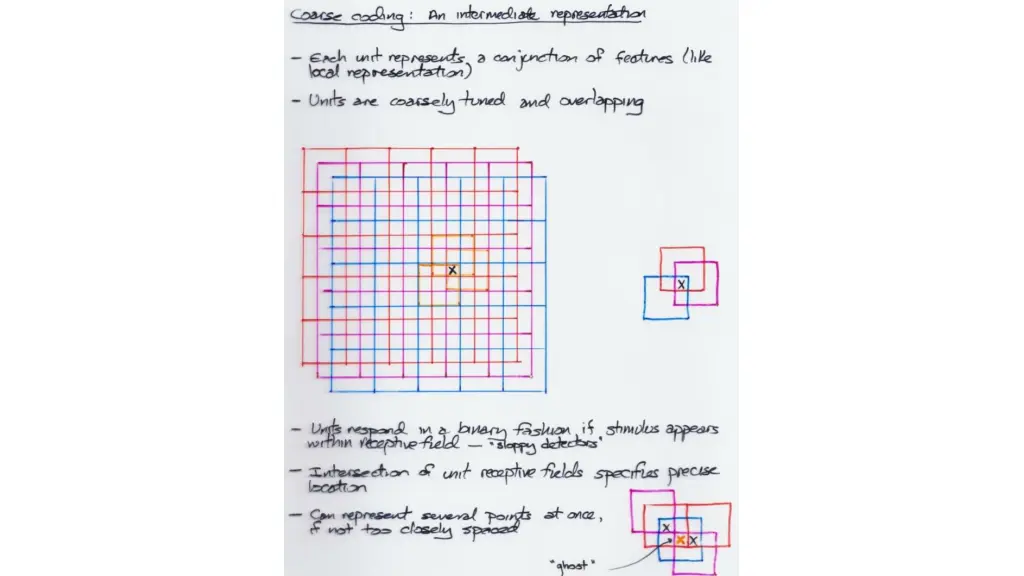 Coarse coding: An intermediate representation
- Each unit represents a conjunction of features (like
local representation)
- Units are coarsely tuned and overlapping
x
x
- Units respond in a binary fashion if stimulus appears
within receptive field — "sloppy detectors"
- Intersection of unit receptive fields specifies precise
location
- Can represent several points at once,
if not too closely spaced
x
x x
"ghost"